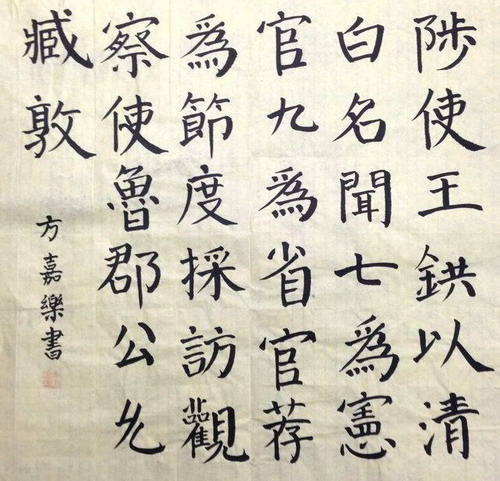 陟使王鉷以清
白名聞七爲憲
官九爲省官荐
爲節度採訪觀
察使魯郡公允
臧敦
方嘉樂書